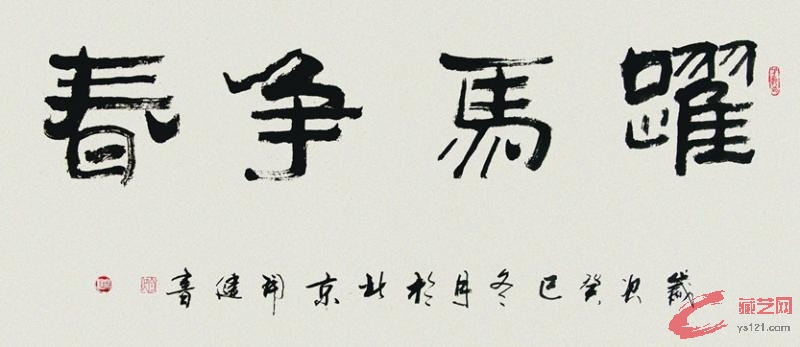 躍馬争春
歲次癸巳冬月於北京健書
藏艺网
ys121.com